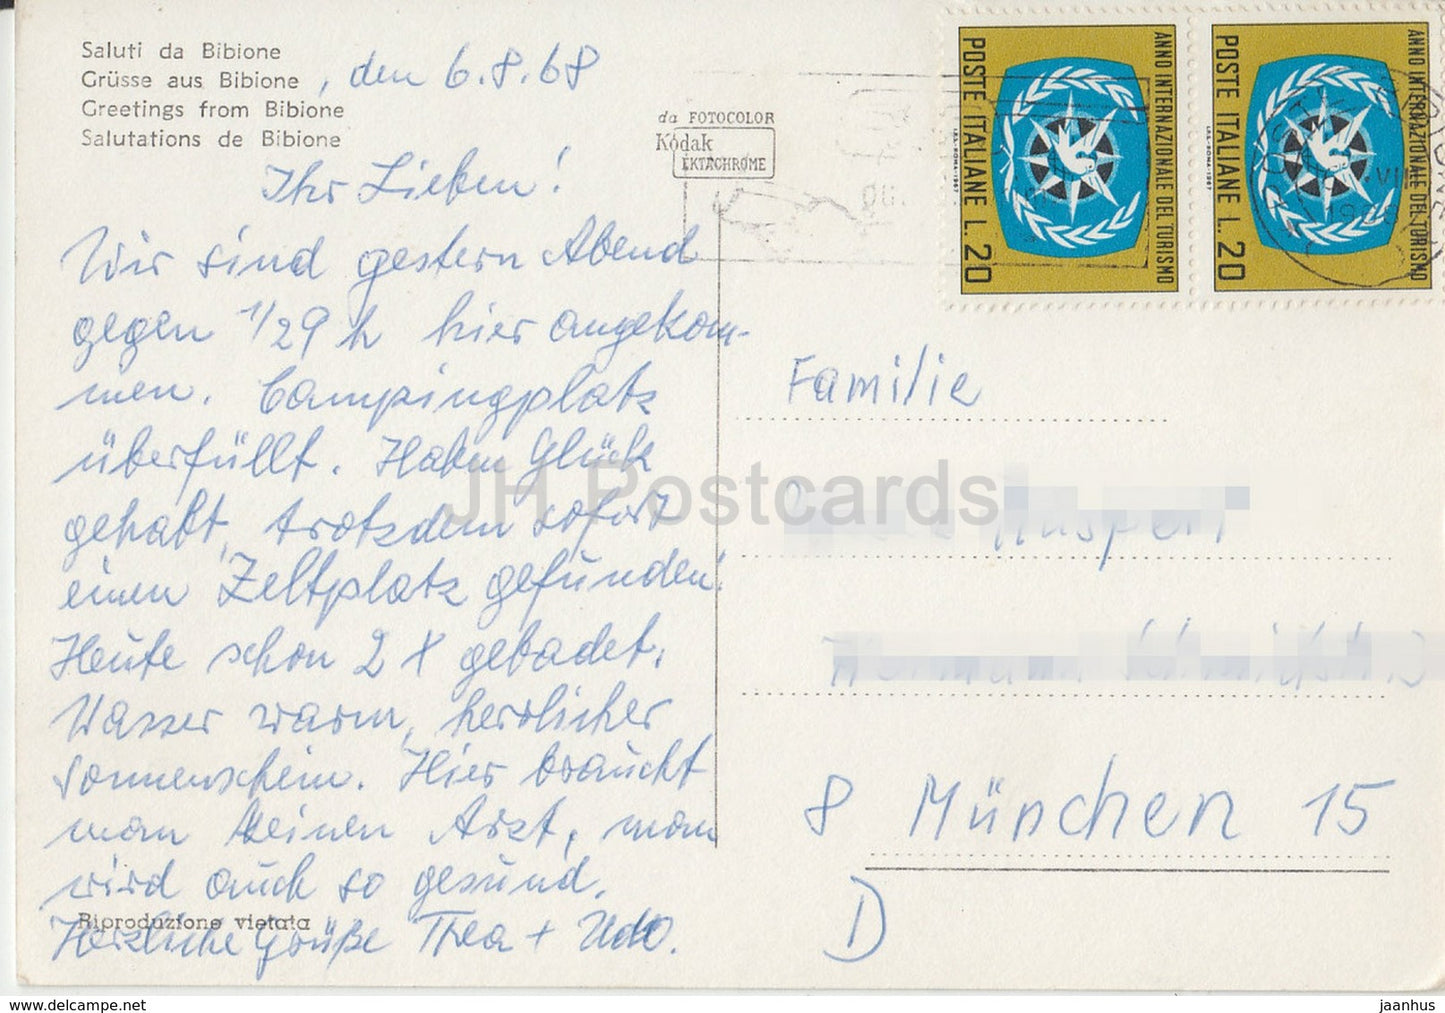 Saluti da Bibione
Grüsse aus Bibione, den 6.8.68
Greetings from Bibione
Salutations de Bibione
da FOTOCOLOR
Kodak
EKTACHROME
Ihr Lieben!
Wir sind gestern Abend
gegen 1/29 h hier angekom-
men. Campingplatz
überfüllt. Haben Glück
gehabt, trotzdem sofort
einen Zeltplatz gefunden.
Heute schon 2 x gebadet.
Wasser warm, herrlicher
Sonnenschein. Hier braucht
man keinen Arzt, man
wird auch so gesund.
Herzliche Grüße Thea + Udo.
Riproduzione vietata
POSTE ITALIANE L. 20
ANNO INTERNAZIONALE DEL TURISMO
I.P.S.-ROMA-1967
POSTE ITALIANE L. 20
ANNO INTERNAZIONALE DEL TURISMO
I.P.S.-ROMA-1967
Familie
8 München 15
D
JH Postcards
https://www.jh-postcards.com
jaanhus